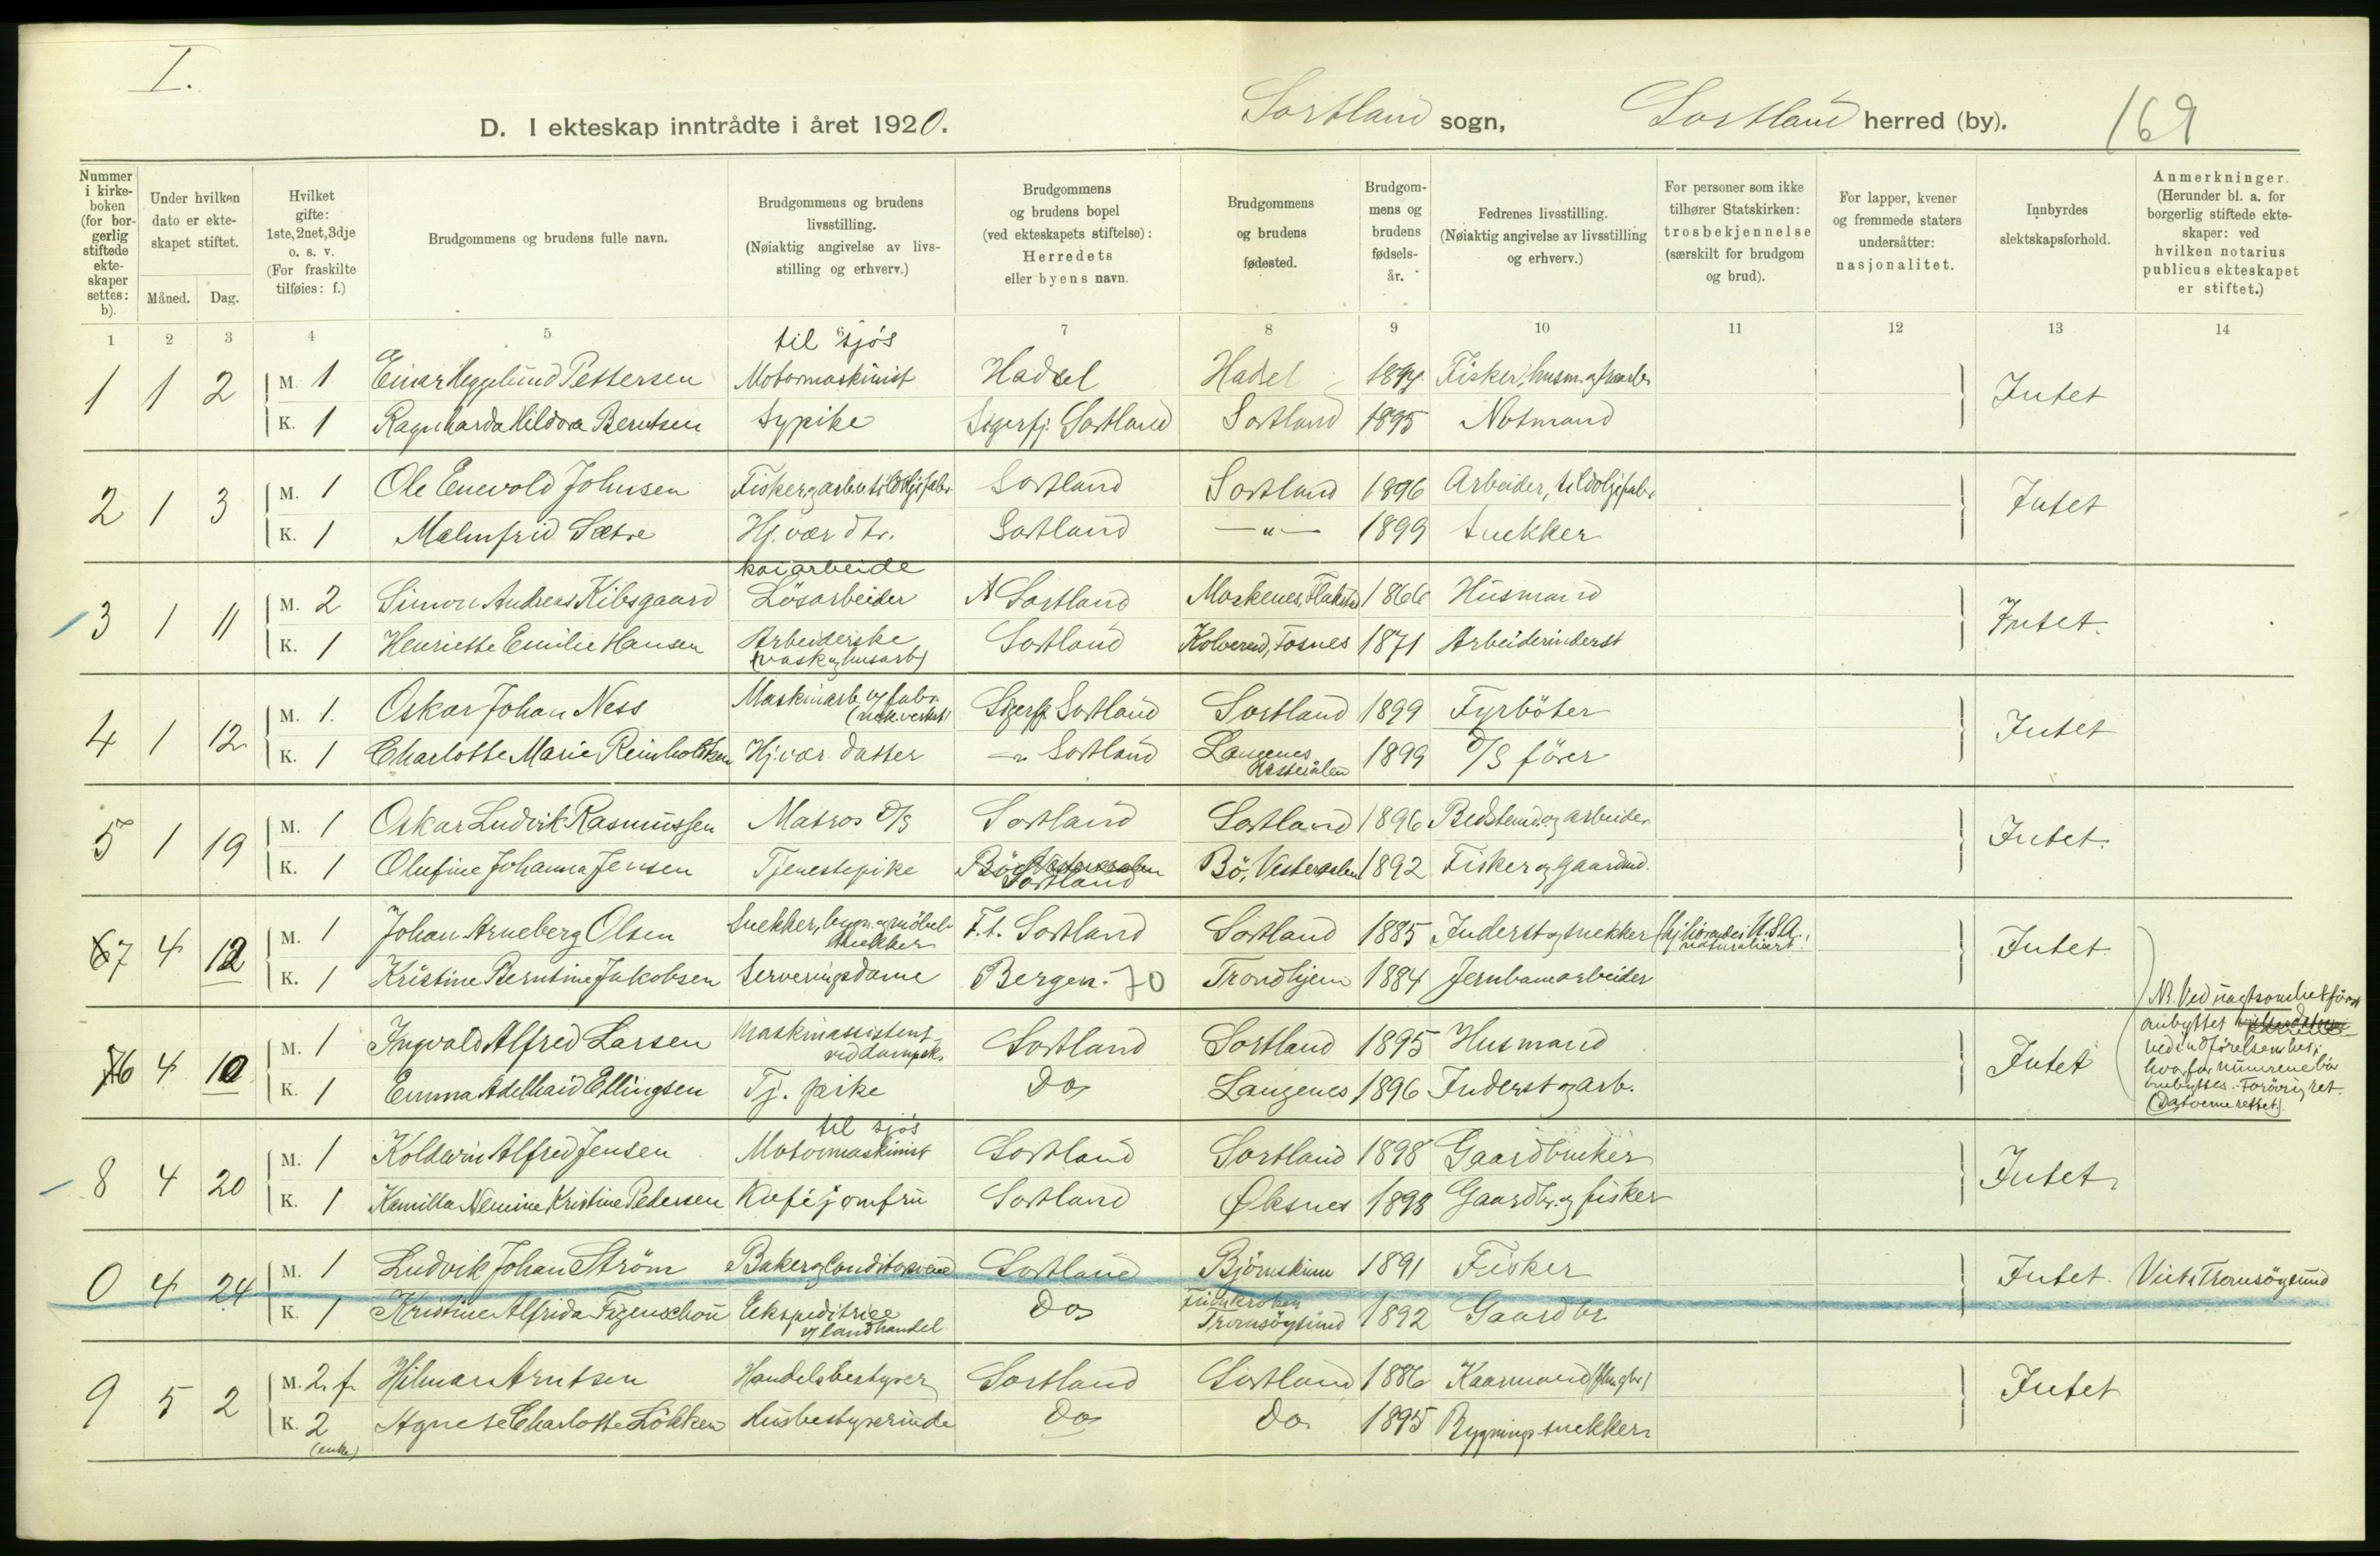 I.
D. I ekteskap inntrådte i året 1920. Sortland sogn, Sortland herred (by). 169
Nummer i kirke-boken (for bor-gerlig stiftede ekte-skaper settes: b).
Under hvilken dato er ekte-skapet stiftet.
Måned. Dag.
Hvilket gifte: 1ste, 2net, 3dje o. s. v. (For fraskilte tilføies: f.)
Brudgommens og brudens fulle navn.
Brudgommens og brudens livsstilling. (Nøiaktig angivelse av livs-stilling og erhverv.)
Brudgommens og brudens bopel (ved ekteskapets stiftelse): Herredets eller byens navn.
Brudgommens og brudens fødested.
Brudgom-mens og brudens fødsels-år.
Fedrenes livsstilling. (Nøiaktig angivelse av livsstilling og erhverv.)
For personer som ikke tilhører Statskirken: trosbekjennelse (særskilt for brudgom og brud).
For lapper, kvener og fremmede staters undersåtter: nasjonalitet.
Innbyrdes slektskapsforhold.
Anmerkninger. (Herunder bl. a. for borgerlig stiftede ekte-skaper: ved hvilken notarius publicus ekteskapet er stiftet.)
1 2 3 4 5 6 7 8 9 10 11 12 13 14
til sjøs
1 1 2 M. 1 Einar Heggelund Pettersen Motormaskinist Hadsel Hadsel 1894 Fisker, husm. og
K. 1 Ragnharda Hildora Berntsen Sypike Sigerfj. Sortland Sortland 1895 Notmand Intet
2 1 3 M. 1 Ole Enevold Johnsen Fisker og arb. v. sildoljefabr. Sortland Sortland 1896 Arbeider, sildoljefabr.
K. 1 Malmfrid Sætre Hj. vær dtr. Sortland —"— 1899 Snekker Intet
kaiarbeide
3 1 11 M. 2 Simon Andreas Kibsgaard Løsarbeider Sortland Moskenes, Flakstad 1866 Husmand
K. 1 Henriette Emilie Hansen Arbeiderske (vask og husarb) Sortland Kolvereid, Fosnes 1871 Arbeiderinderst Intet.
4 1 12 M. 1. Oskar Johan Ness Maskinarb. v/ fabr. (mek. verkst) Sigerfj. Sortland Sortland 1899 Fyrbøter
K. 1 Charlotte Marie Reinholdtsen Hj. vær. datter —"— Sortland Langenes Vesteraalen 1899 D/S fører Intet
5 1 19 M. 1 Oskar Ludvik Rasmussen Matros D/S Sortland Sortland 1896 og arbeider
K. 1 Olufine Johanna Jensen Tjenestepike Bø Vesteraalen Sortland Bø, Vesteraalen 1892 Fisker og gaardmd. Intet.
67 4 12 M. 1 Johan Arneberg Olsen Snekker, bygn. og møbelsnekker F. t. Sortland Sortland 1885 Inderst og snekker (Hj. hörende i U.S.A. naturalisert.
K. 1 Kristine Berntine Jakobsen Serveringsdame Bergen. 70 Trondhjem 1884 Jernbanearbeider Intet.
76 4 10 M. 1 Ingvald Alfred Larsen Maskinassistent ved dampsk. Sortland Sortland 1895 Husmand
K. 1 Emma Adelhaid Ellingsen Tj. pike Do Langenes 1896 Inderst og arb. Intet
NB. Ved uagtsomhet først
ombyttet
ved indførelsen her,
hvorfor numrene bør
ombyttes. Forøvrig ret.
(Datoerne rettet).
til sjøs
8 4 20 M. 1 Koldevin Alfred Jensen Motormaskinist Sortland Sortland 1898 Gaardbruker
K. 1 Kamilla Nemine Kristine Pedersen Kaféjomfru Sortland Øksnes 1898 Gaardbr. og fisker Intet.
0 4 24 M. 1 Ludvik Johan Strøm Baker og Sortland Bjørnskinn 1891 Fisker
K. 1 Kristine Alfrida Figenschou Ekspeditrice v/ landhandel Do Finnkroken Tromsøysund 1892 Gaardbr Intet. Viet i Tromsøysund
9 5 2 M. 2. f. Hilmar Arntsen Handelsbestyrer Sortland Sortland 1886 Kaarmand
K. 2 (enke) Agnete Charlotte Løkken Husbestyrerinde Do Do 1895 Bygnings-snekker Intet